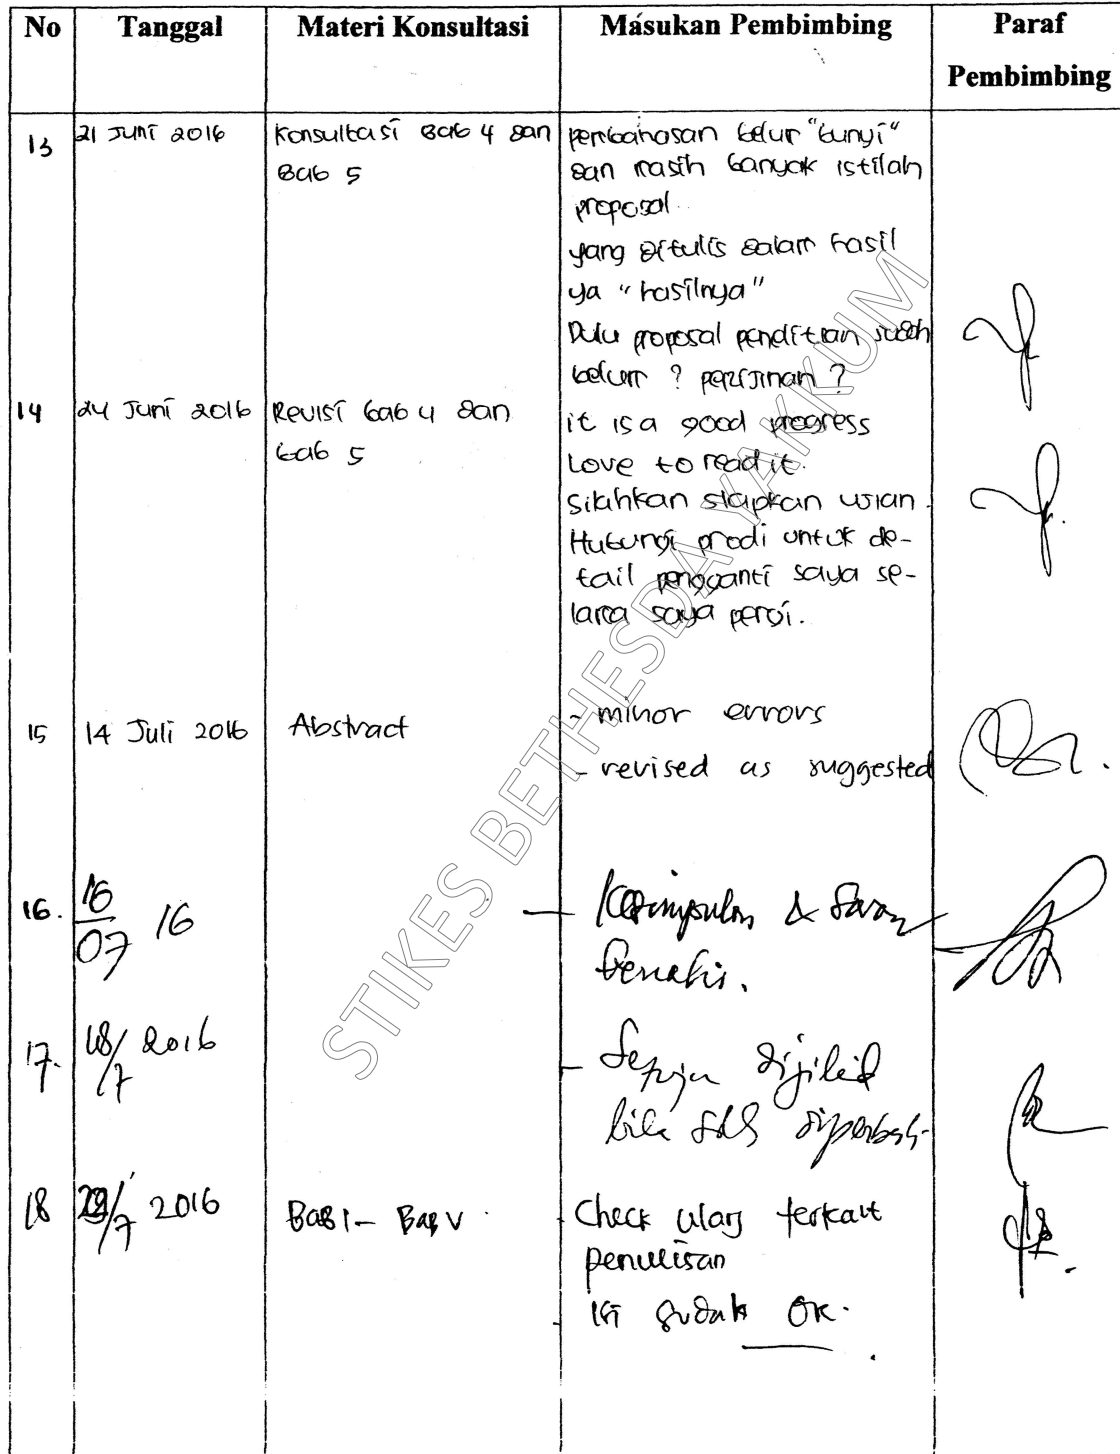 No Tanggal Materi Konsultasi Masukan Pembimbing Paraf
Pembimbing
13 21 Juni 2016 Konsultasi Bab 4 dan
Bab 5
pembahasan belum "bunyi"
dan masih banyak istilah
proposal
yang ditulis dalam hasil
ya "hasilnya"
Dulu proposal penelitian sudah
belum ? perijinan ?
14 24 Juni 2016 Revisi bab 4 dan
bab 5
it is a good progress
Love to read it.
silahkan siapkan ujian.
Hubungi prodi untuk de-
tail pengganti saya se-
lama saya pergi.
15 14 Juli 2016 Abstract
- minor errors
- revised as suggested
16. 16/07 16
- Kesimpulan & Saran
17. 18/7 2016
- Setuju dijilid
bila sdh
18 /7 2016 BAB I - BAB V
Check ulang terkait
penulisan
isi sudah OK.
STIKES BETHESDA YAKKUM